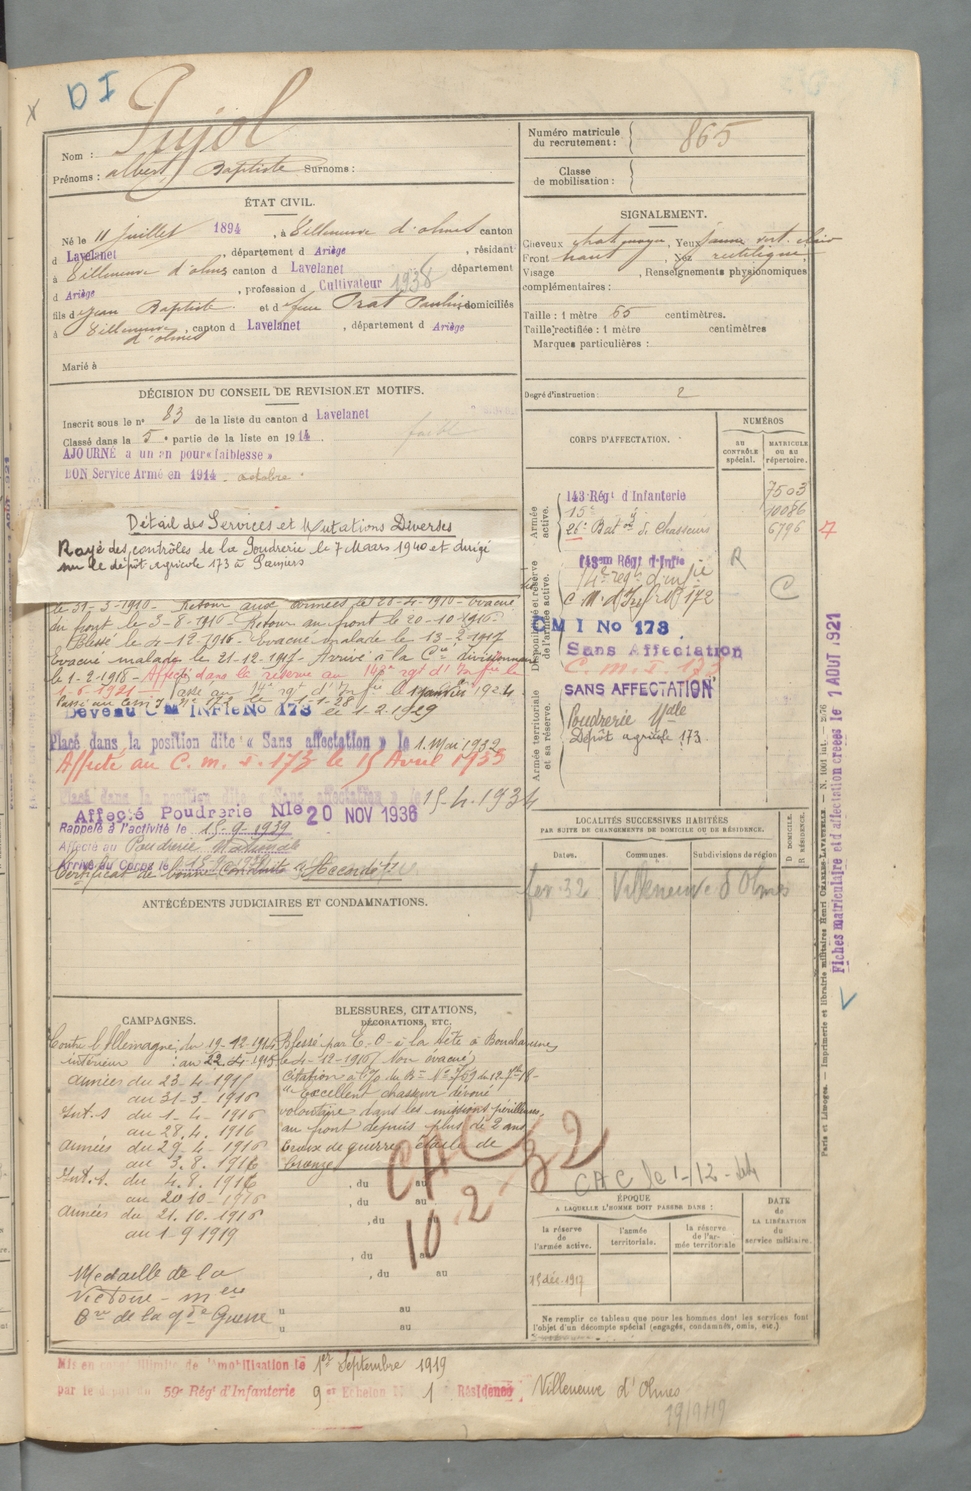 D I
Nom : Pujol
Prénoms : albert Baptiste Surnoms :
ÉTAT CIVIL.
Né le 11 juillet 1894, à Villeneuve d'olmes canton
d Lavelanet, département d Ariège, résidant
à Villeneuve d'olmes canton d Lavelanet département
d Ariège, profession d Cultivateur 1938
fils d jean Baptiste et d feue Prat Pauline domiciliés
à Villeneuve d'olmes, canton d Lavelanet, département d Ariège
Marié à
DÉCISION DU CONSEIL DE REVISION ET MOTIFS.
Inscrit sous le n° 83 de la liste du canton d Lavelanet
Classé dans la 5e partie de la liste en 1914.
AJOURNÉ à un an pour « faiblesse »
BON Service Armé en 1914 octobre
Détail des Services et Mutations Diverses
Rayé des contrôles de la Poudrerie le 7 Maars 1940 et dirigé
sur le dépôt agricole 173 à Pamiers
le 31-3-1916 - Retour aux armées le 28-4-1916 - évacué
du front le 3-8-1916 - Retour au front le 20-10-1916.
Blessé le 4-12-1916 - Evacué malade le 13-2-1917
Evacué malade le 21-12-1917 - Arrivé à la Cie divisionnaire
le 1-2-1918 - Affecté dans la réserve au 143e rgt d'Infie le
1-6-1921 - Passé au 14e rgt d'Infie le 1 janvier 1924.
Passé au C m I N° 172 le 1-1-28
Devenu C M INFIE No 173 le 1.2.1929
Placé dans la position dite « Sans affectation » le 1. Mai 1932
Affecté au C. m. I. 173 le 15 Avril 1933
Placé dans la position dite « Sans affectation » le 15-4-1934
Affecté Poudrerie Nle 20 NOV 1936
Rappelé à l'activité le 15-9-1939
Affecté au Poudrerie Nationale
Arrivé au Corps le
Certificat de bonne conduite « Accordé »
ANTÉCÉDENTS JUDICIAIRES ET CONDAMNATIONS.
CAMPAGNES.
Contre l'Allemagne du 19-12-1914
intérieur : au 22-4-1915
armées du 23-4-1915
au 31-3-1916
Int. s du 1-4-1916
au 28.4.1916
armées du 29-4-1916
au 3.8.1916
Int. s. du 4.8.1916
au 20 10-1916
armées du 21.10.1916
au 1 9 1919
Medaille de la
Victoire - meu
Bve de la gde Guerre
BLESSURES, CITATIONS,
DÉCORATIONS, ETC.
Blessé par E. O à la tête à Bouchavesnes
le 4-12-1916 (Non évacué)
Citation à l'O/ du Bon N° 769 du 12-7bre 18-
"Excellent chasseur dévoué
volontaire dans les missions périlleuses,
au front depuis plus de 2 ans
Croix de guerre étoile de
bronze
, du au
, du au
, du
, du au
, du au
u au
u au
CAC 32
10 2
Numéro matricule
du recrutement : 865
Classe
de mobilisation :
SIGNALEMENT.
Cheveux chat moyen, Yeux jaune vert clair
Front haut, Nez rectiligne
Visage, Renseignements physionomiques
complémentaires :
Taille : 1 mètre 65 centimètres.
Taille rectifiée : 1 mètre centimètres
Marques particulières :
Degré d'instruction : 2
CORPS D'AFFECTATION.
NUMÉROS
AU CONTRÔLE spécial.
MATRICULE ou au répertoire.
Armée active.
143 Régt d'Infanterie 7503
15e d° 10086
26e Baton de Chasseurs 6796
Disponibilité et réserve de l'armée active.
143em Régt d'Infie R
14e regt d'infie C
C M d'Infie N° 172
C M I No 173
Sans Affectation
C. m. I. 173
SANS AFFECTATION
Armée territoriale et sa réserve.
Poudrerie Nale
Dépôt agricole 173.
LOCALITÉS SUCCESSIVES HABITÉES
PAR SUITE DE CHANGEMENTS DE DOMICILE OU DE RÉSIDENCE.
Dates. Communes. Subdivisions de région
D. DOMICILE.
R. RÉSIDENCE.
fev. 32 Villeneuve d'Olmes
CAC le 1-12-
ÉPOQUE
A LAQUELLE L'HOMME DOIT PASSER DANS :
DATE
de
LA LIBÉRATION
du
service militaire.
la réserve de l'armée active.
l'armée territoriale.
la réserve de l'armée territoriale
15 déc. 1917
Ne remplir ce tableau que pour les hommes dont les services font
l'objet d'un décompte spécial (engagés, condamnés, omis, etc.)
Fiches matriculaire et d'affectation créées le 1 AOUT 1921
Paris et Limoges. — Imprimerie et librairie militaires Henri CHARLES-LAVAUZELLE — N. 1001 int.
Mis en congé illimité de démobilisation le 1er Septembre 1919
par le dépôt du 59e Régt d'Infanterie 9 em Echelon 1 Résidence Villeneuve d'Olmes
19/9/19